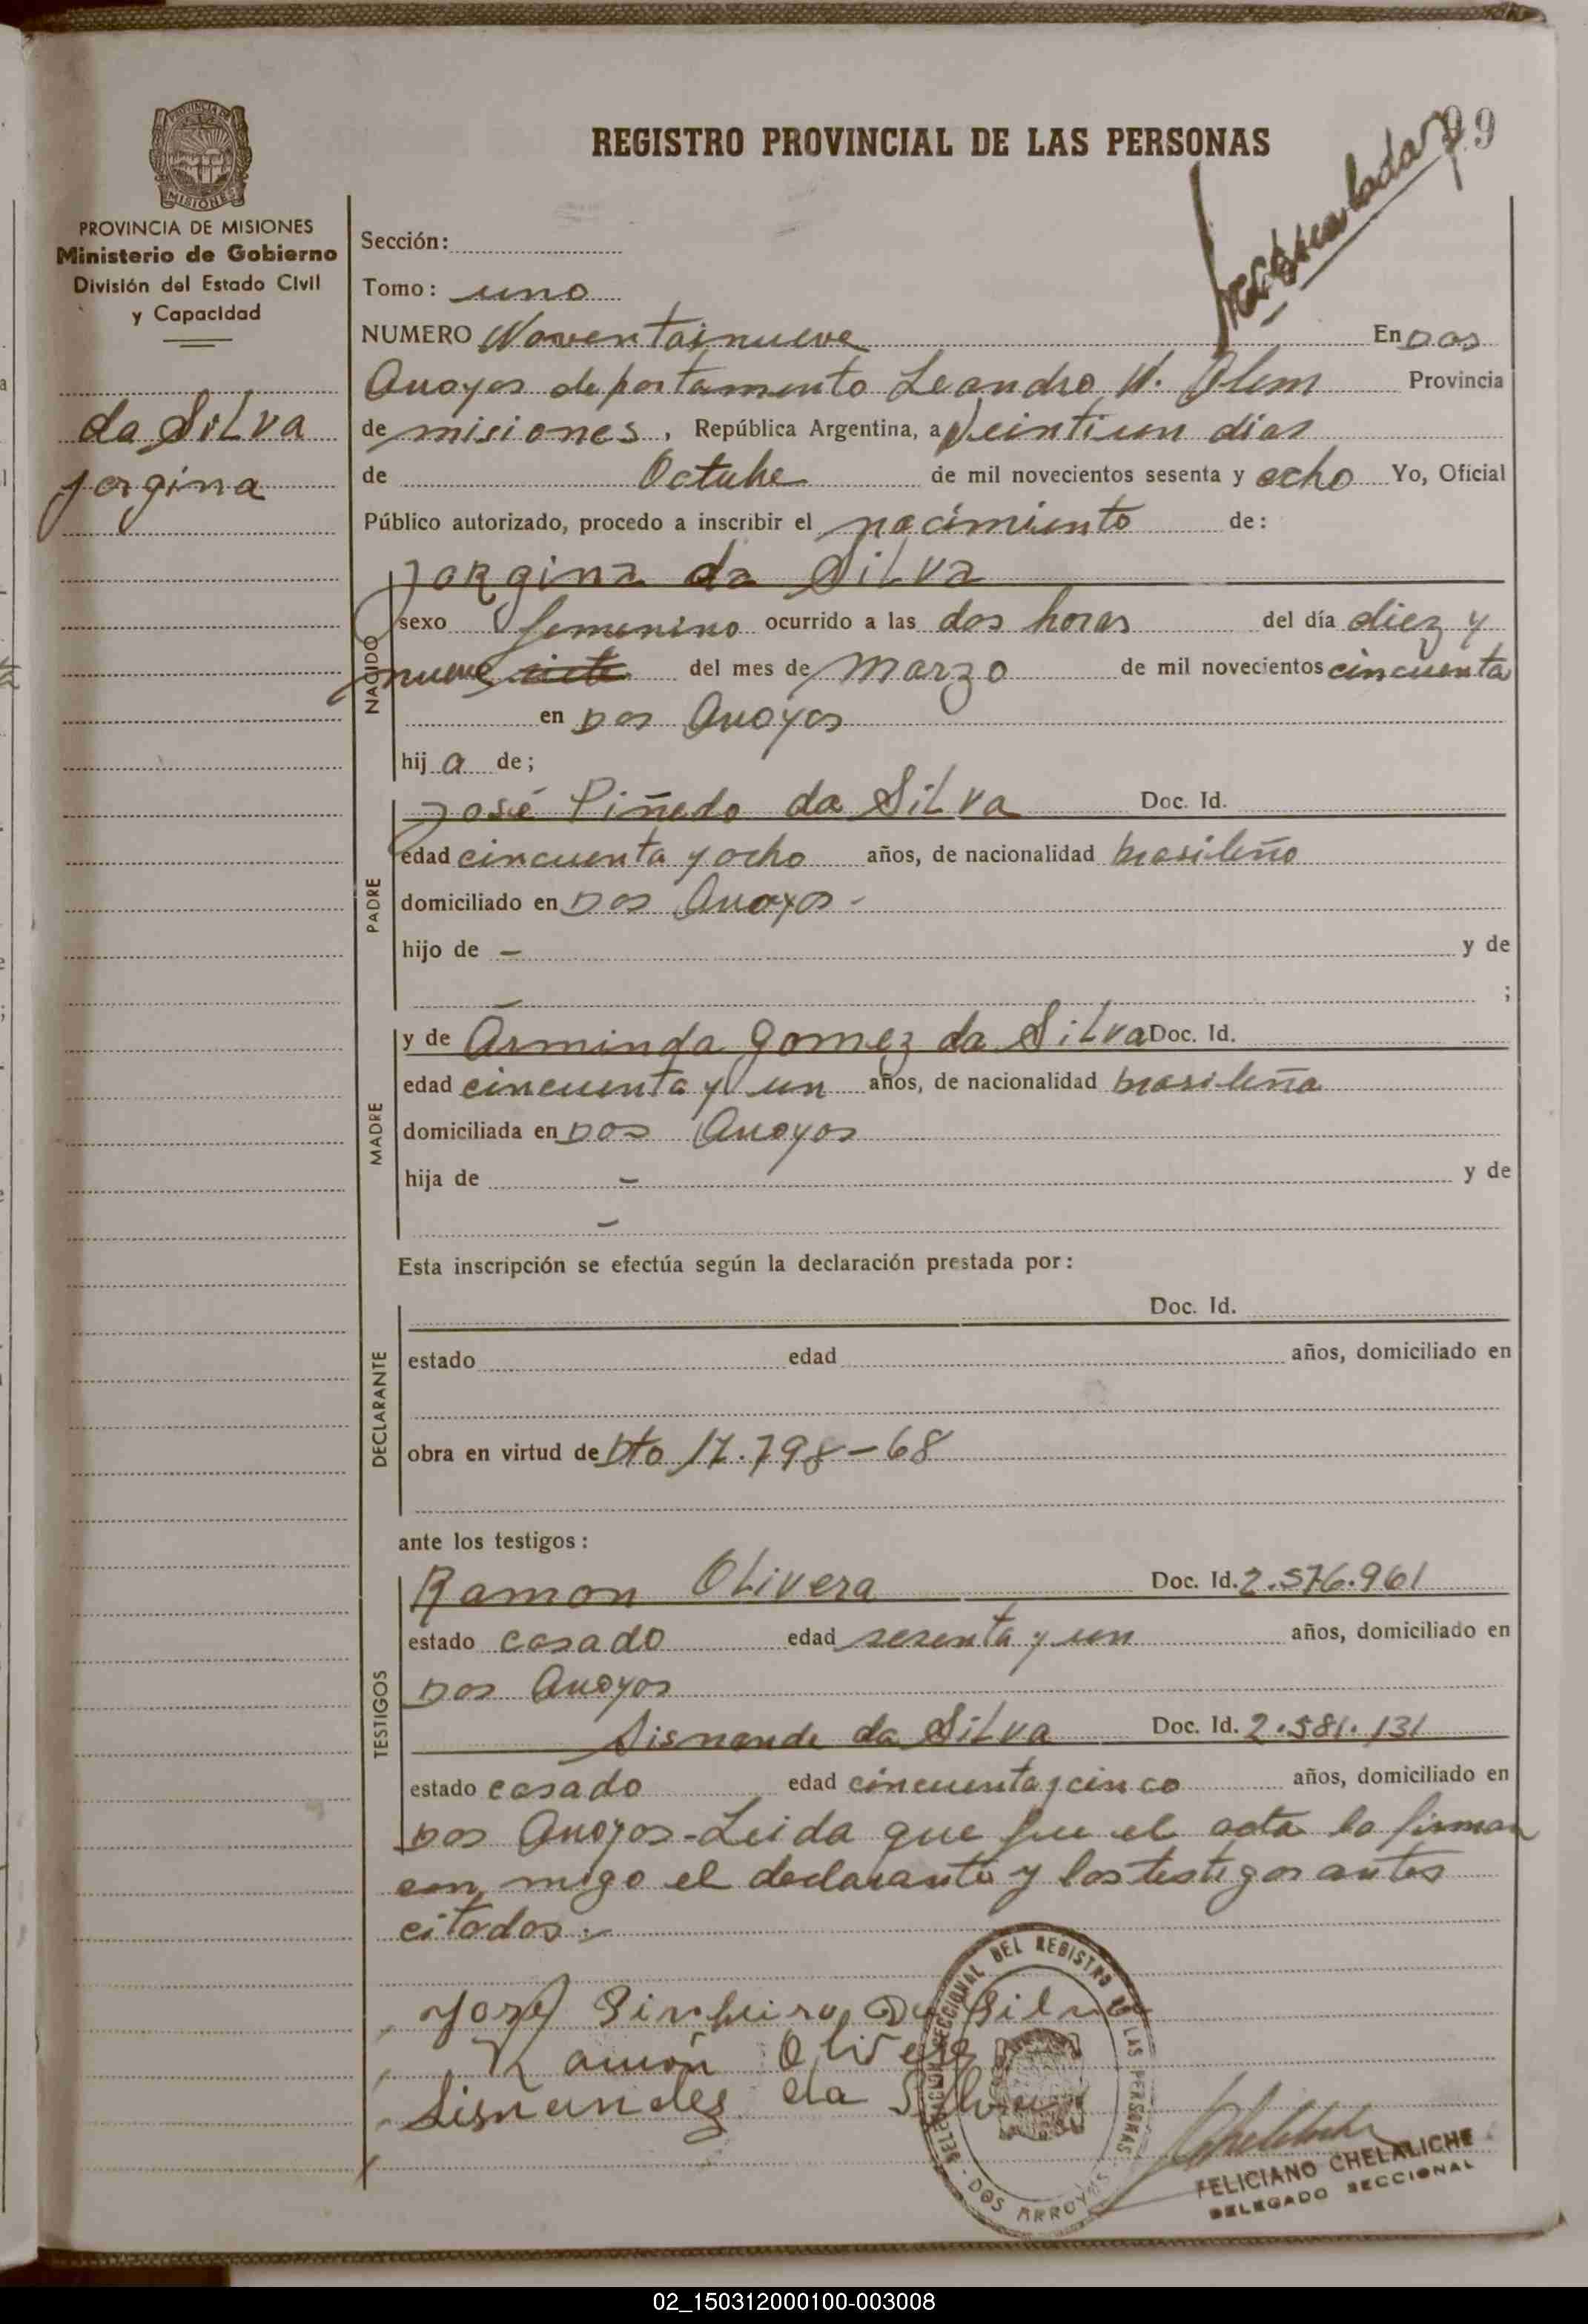 REGISTRO PROVINCIAL DE LAS PERSONAS
99
PROVINCIA DE MISIONES
MISIONES
PROVINCIA DE MISIONES
Ministerio de Gobierno
División del Estado Civil
y Capacidad
da Silva
jorgina
Sección:
Tomo: uno
NUMERO Noventainueve En Dos
Arroyos departamento Leandro N. Alem Provincia
de misiones, República Argentina, a Veintiun dias
de Octubre de mil novecientos sesenta y ocho Yo, Oficial
Público autorizado, procedo a inscribir el nacimiento de:
NACIDO
jorgina da Silva
sexo femenino ocurrido a las dos horas del día diez y
nueve siete del mes de marzo de mil novecientos cincuenta
en Dos Arroyos
hij a de;
PADRE
José Piñedo da Silva Doc. Id.
edad cincuenta y ocho años, de nacionalidad brasileño
domiciliado en Dos Arroyos -
hijo de - y de
- ;
MADRE
y de Arminda gomez da Silva Doc. Id.
edad cincuenta y un años, de nacionalidad brasileña
domiciliada en Dos Arroyos
hija de - y de
-
Esta inscripción se efectúa según la declaración prestada por:
DECLARANTE
Doc. Id.
estado edad años, domiciliado en
obra en virtud de Dto 17.798-68
ante los testigos:
TESTIGOS
Ramon Olivera Doc. Id. 2.576.961
estado casado edad sesenta y un años, domiciliado en
Dos Arroyos
Sisnande da Silva Doc. Id. 2.581.131
estado casado edad cincuenta y cinco años, domiciliado en
Dos Arroyos-Leida que fue el acta la firman
con migo el declarante y los testigos antes
citados.-
José Pinheiro Da Silva
Ramón Olivera
Sisnandes da Silva
DELEGACION SECCIONAL DEL REGISTRO DE LAS PERSONAS
DOS ARROYOS
FELICIANO CHELALICHE
DELEGADO SECCIONAL
02_150312000100-003008